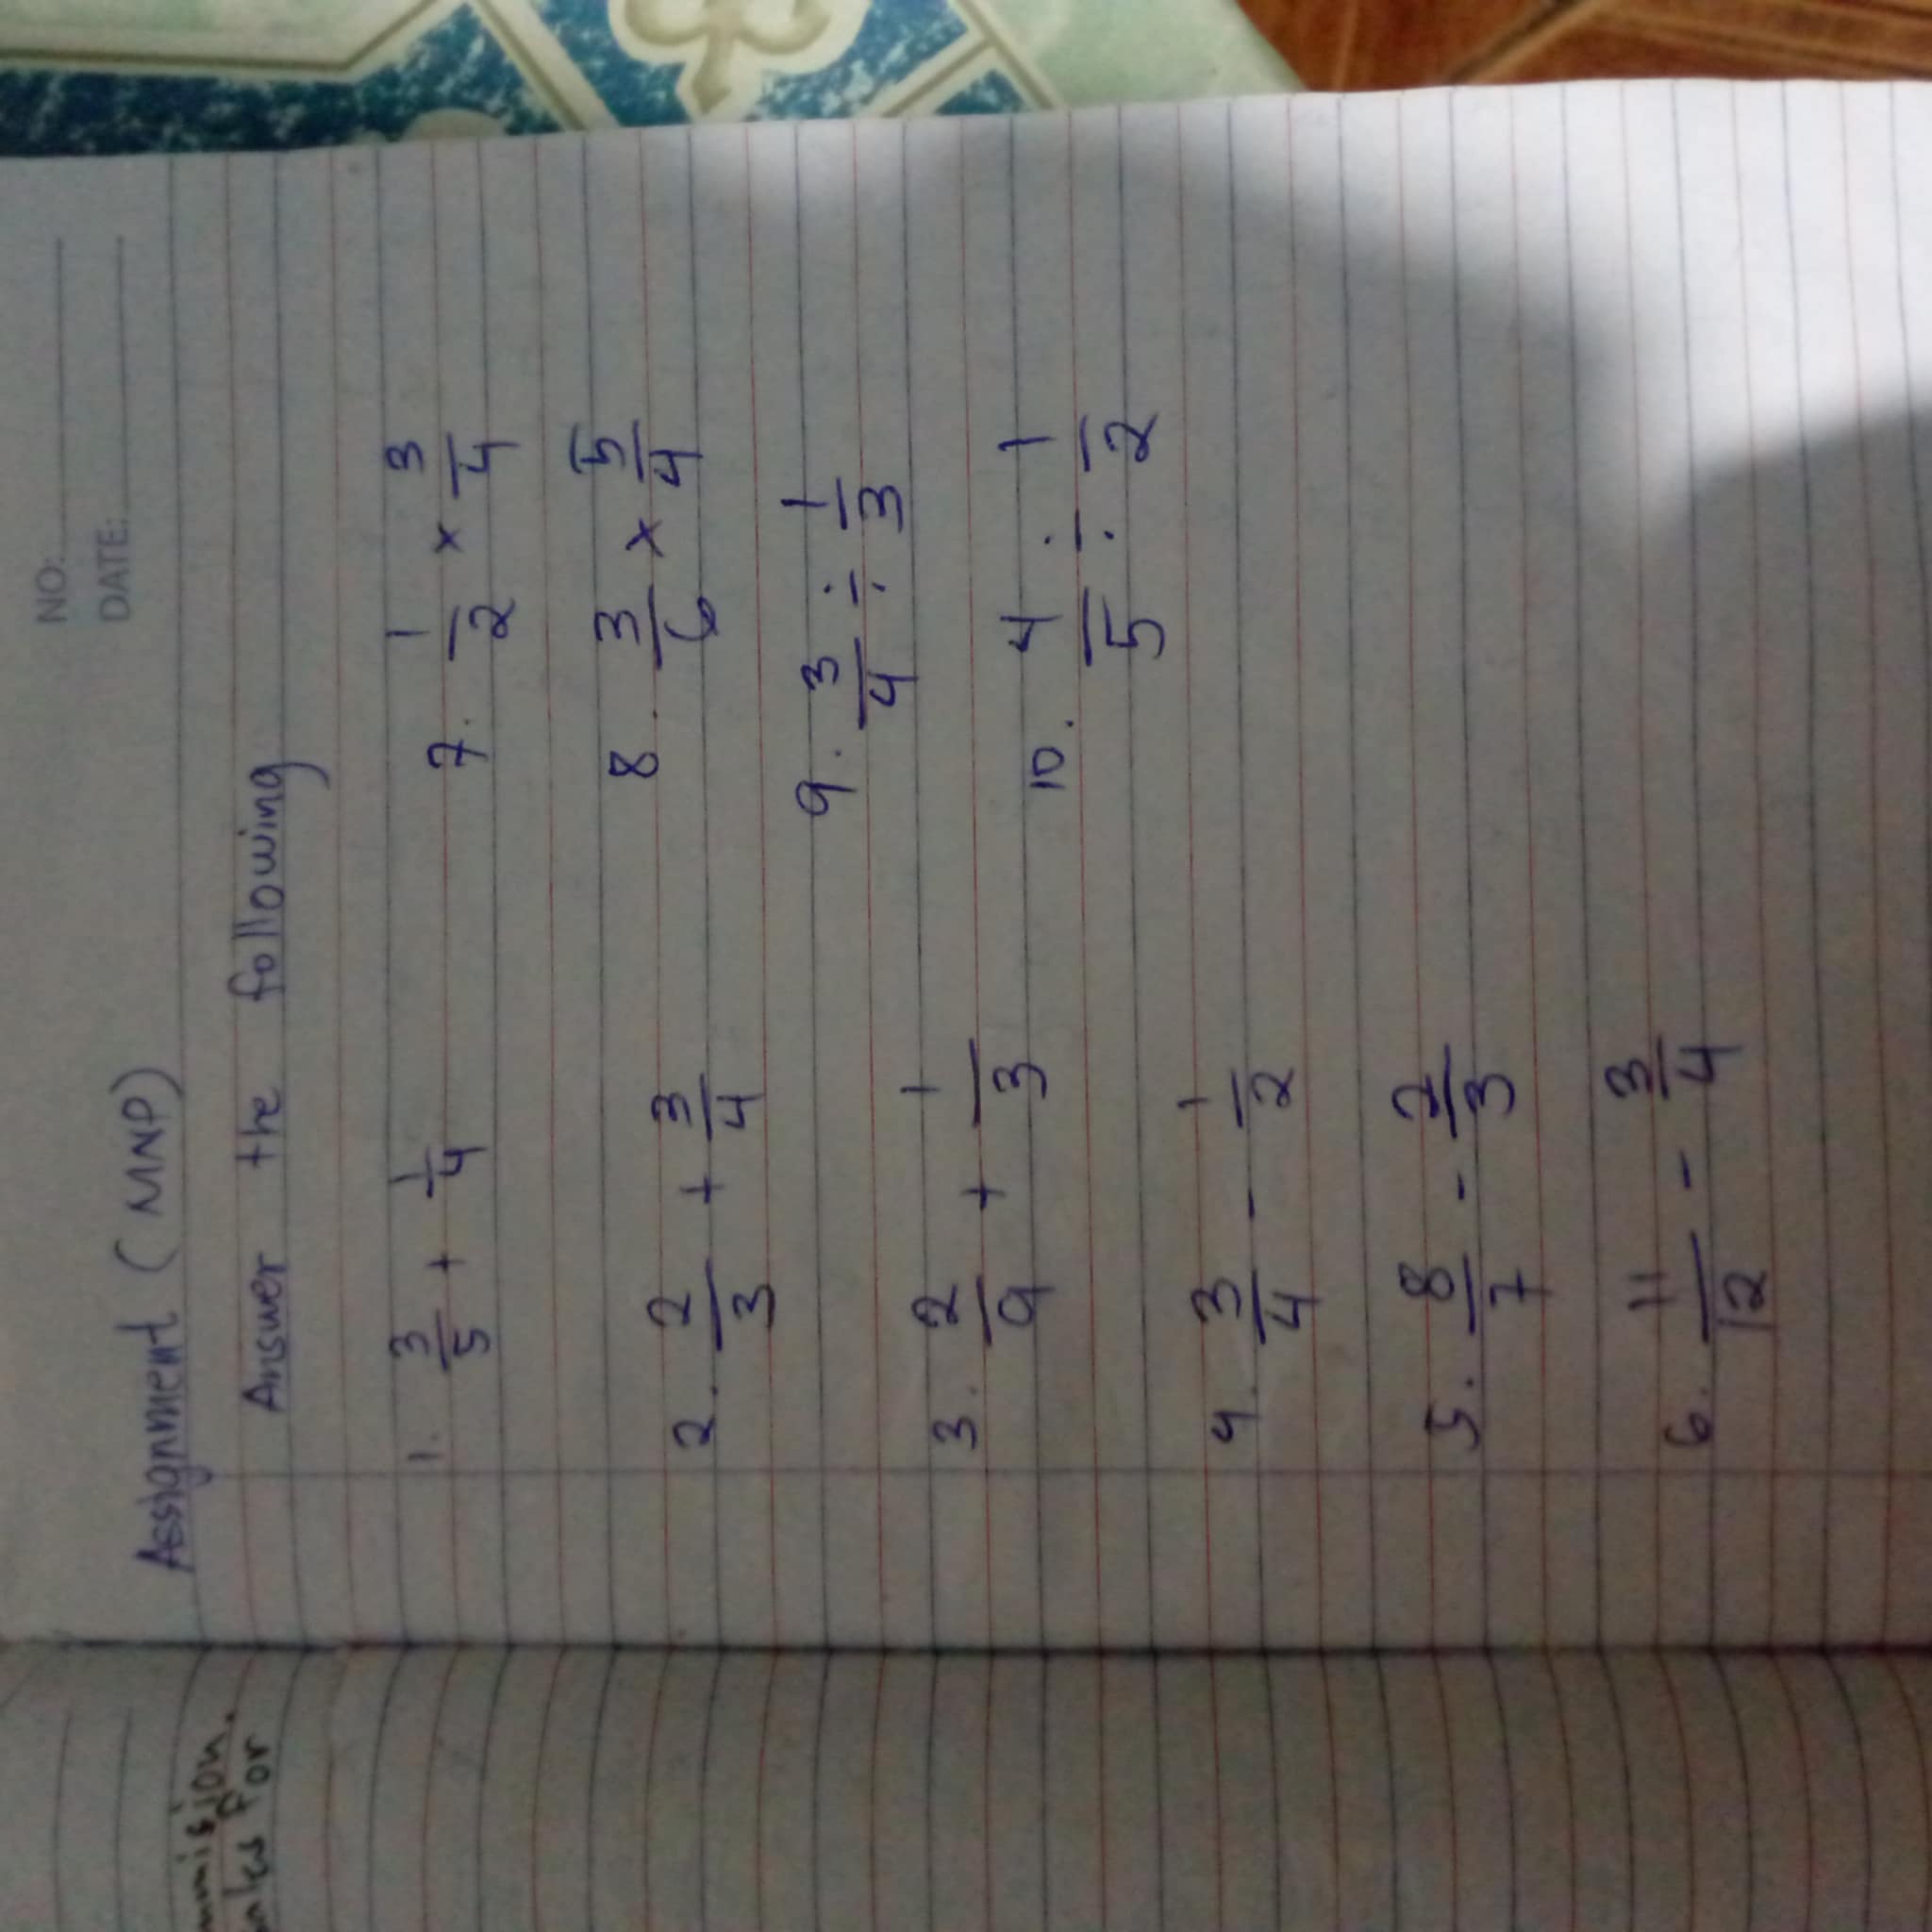 NO:
DATE:
Assignment (MNP)
Answer the following
1. 3/5 + 1/4
2. 2/3 + 3/4
3. 2/9 + 1/3
4. 3/4 - 1/2
5. 8/7 - 2/3
6. 11/12 - 3/4
7. 1/2 × 3/4
8. 3/6 × 5/4
9. 3/4 ÷ 1/3
10. 4/5 ÷ 1/2
For